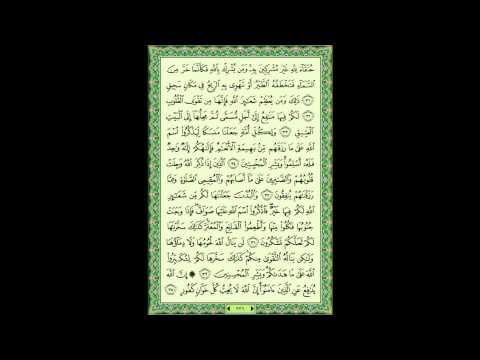 حُنَفَآءَ لِلَّهِ غَيْرَ مُشْرِكِينَ بِهِۦ وَمَن يُشْرِكْ بِٱللَّهِ فَكَأَنَّمَا خَرَّ مِنَ
ٱلسَّمَآءِ فَتَخْطَفُهُ ٱلطَّيْرُ أَوْ تَهْوِى بِهِ ٱلرِّيحُ فِى مَكَانٍ سَحِيقٍ
٣١ ذَٰلِكَ وَمَن يُعَظِّمْ شَعَـٰٓئِرَ ٱللَّهِ فَإِنَّهَا مِن تَقْوَى ٱلْقُلُوبِ
٣٢ لَكُمْ فِيهَا مَنَـٰفِعُ إِلَىٰٓ أَجَلٍ مُّسَمًّى ثُمَّ مَحِلُّهَآ إِلَى ٱلْبَيْتِ
ٱلْعَتِيقِ ٣٣ وَلِكُلِّ أُمَّةٍ جَعَلْنَا مَنسَكًا لِّيَذْكُرُوا۟ ٱسْمَ
ٱللَّهِ عَلَىٰ مَا رَزَقَهُم مِّنۢ بَهِيمَةِ ٱلْأَنْعَـٰمِ فَإِلَـٰهُكُمْ إِلَـٰهٌ وَٰحِدٌ
فَلَهُۥٓ أَسْلِمُوا۟ وَبَشِّرِ ٱلْمُخْبِتِينَ ٣٤ ٱلَّذِينَ إِذَا ذُكِرَ ٱللَّهُ وَجِلَتْ
قُلُوبُهُمْ وَٱلصَّـٰبِرِينَ عَلَىٰ مَآ أَصَابَهُمْ وَٱلْمُقِيمِى ٱلصَّلَوٰةِ وَمِمَّا
رَزَقْنَـٰهُمْ يُنفِقُونَ ٣٥ وَٱلْبُدْنَ جَعَلْنَـٰهَا لَكُم مِّن شَعَـٰٓئِرِ
ٱللَّهِ لَكُمْ فِيهَا خَيْرٌ فَٱذْكُرُوا۟ ٱسْمَ ٱللَّهِ عَلَيْهَا صَوَآفَّ فَإِذَا وَجَبَتْ
جُنُوبُهَا فَكُلُوا۟ مِنْهَا وَأَطْعِمُوا۟ ٱلْقَانِعَ وَٱلْمُعْتَرَّ كَذَٰلِكَ سَخَّرْنَـٰهَا
لَكُمْ لَعَلَّكُمْ تَشْكُرُونَ ٣٦ لَن يَنَالَ ٱللَّهَ لُحُومُهَا وَلَا دِمَآؤُهَا
وَلَـٰكِن يَنَالُهُ ٱلتَّقْوَىٰ مِنكُمْ كَذَٰلِكَ سَخَّرَهَا لَكُمْ لِتُكَبِّرُوا۟
ٱللَّهَ عَلَىٰ مَا هَدَىٰكُمْ وَبَشِّرِ ٱلْمُحْسِنِينَ ٣٧ ۞ إِنَّ ٱللَّهَ
يُدَٰفِعُ عَنِ ٱلَّذِينَ ءَامَنُوٓا۟ إِنَّ ٱللَّهَ لَا يُحِبُّ كُلَّ خَوَّانٍ كَفُورٍ ٣٨
٣٣٦